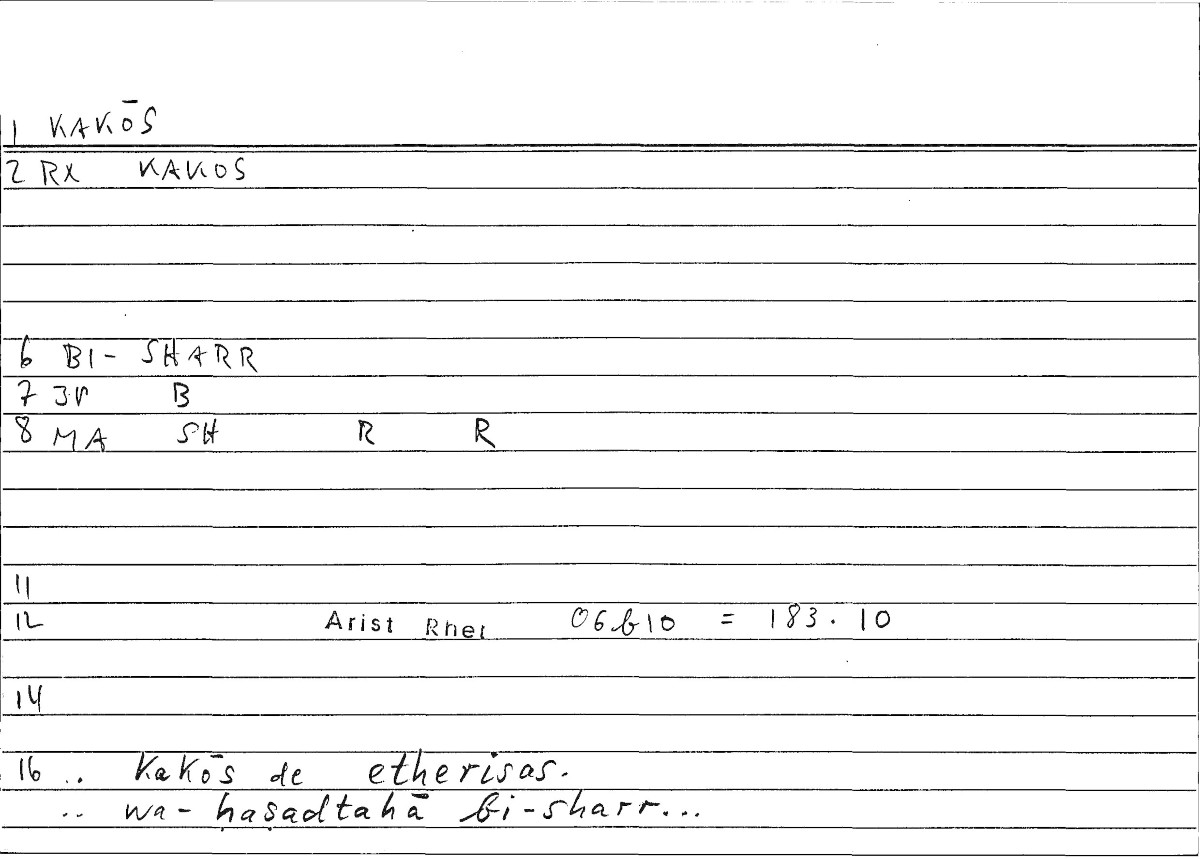 1 KAKŌS
2 RX KAKOS
6 BI- SHARR
7 3V B
8 MA SH R R
11
12 Arist Rhet 06b10 = 183.10
14
16 .. Kakōs de etherisas.
.. wa-ḥaṣadtahā bi-sharr...